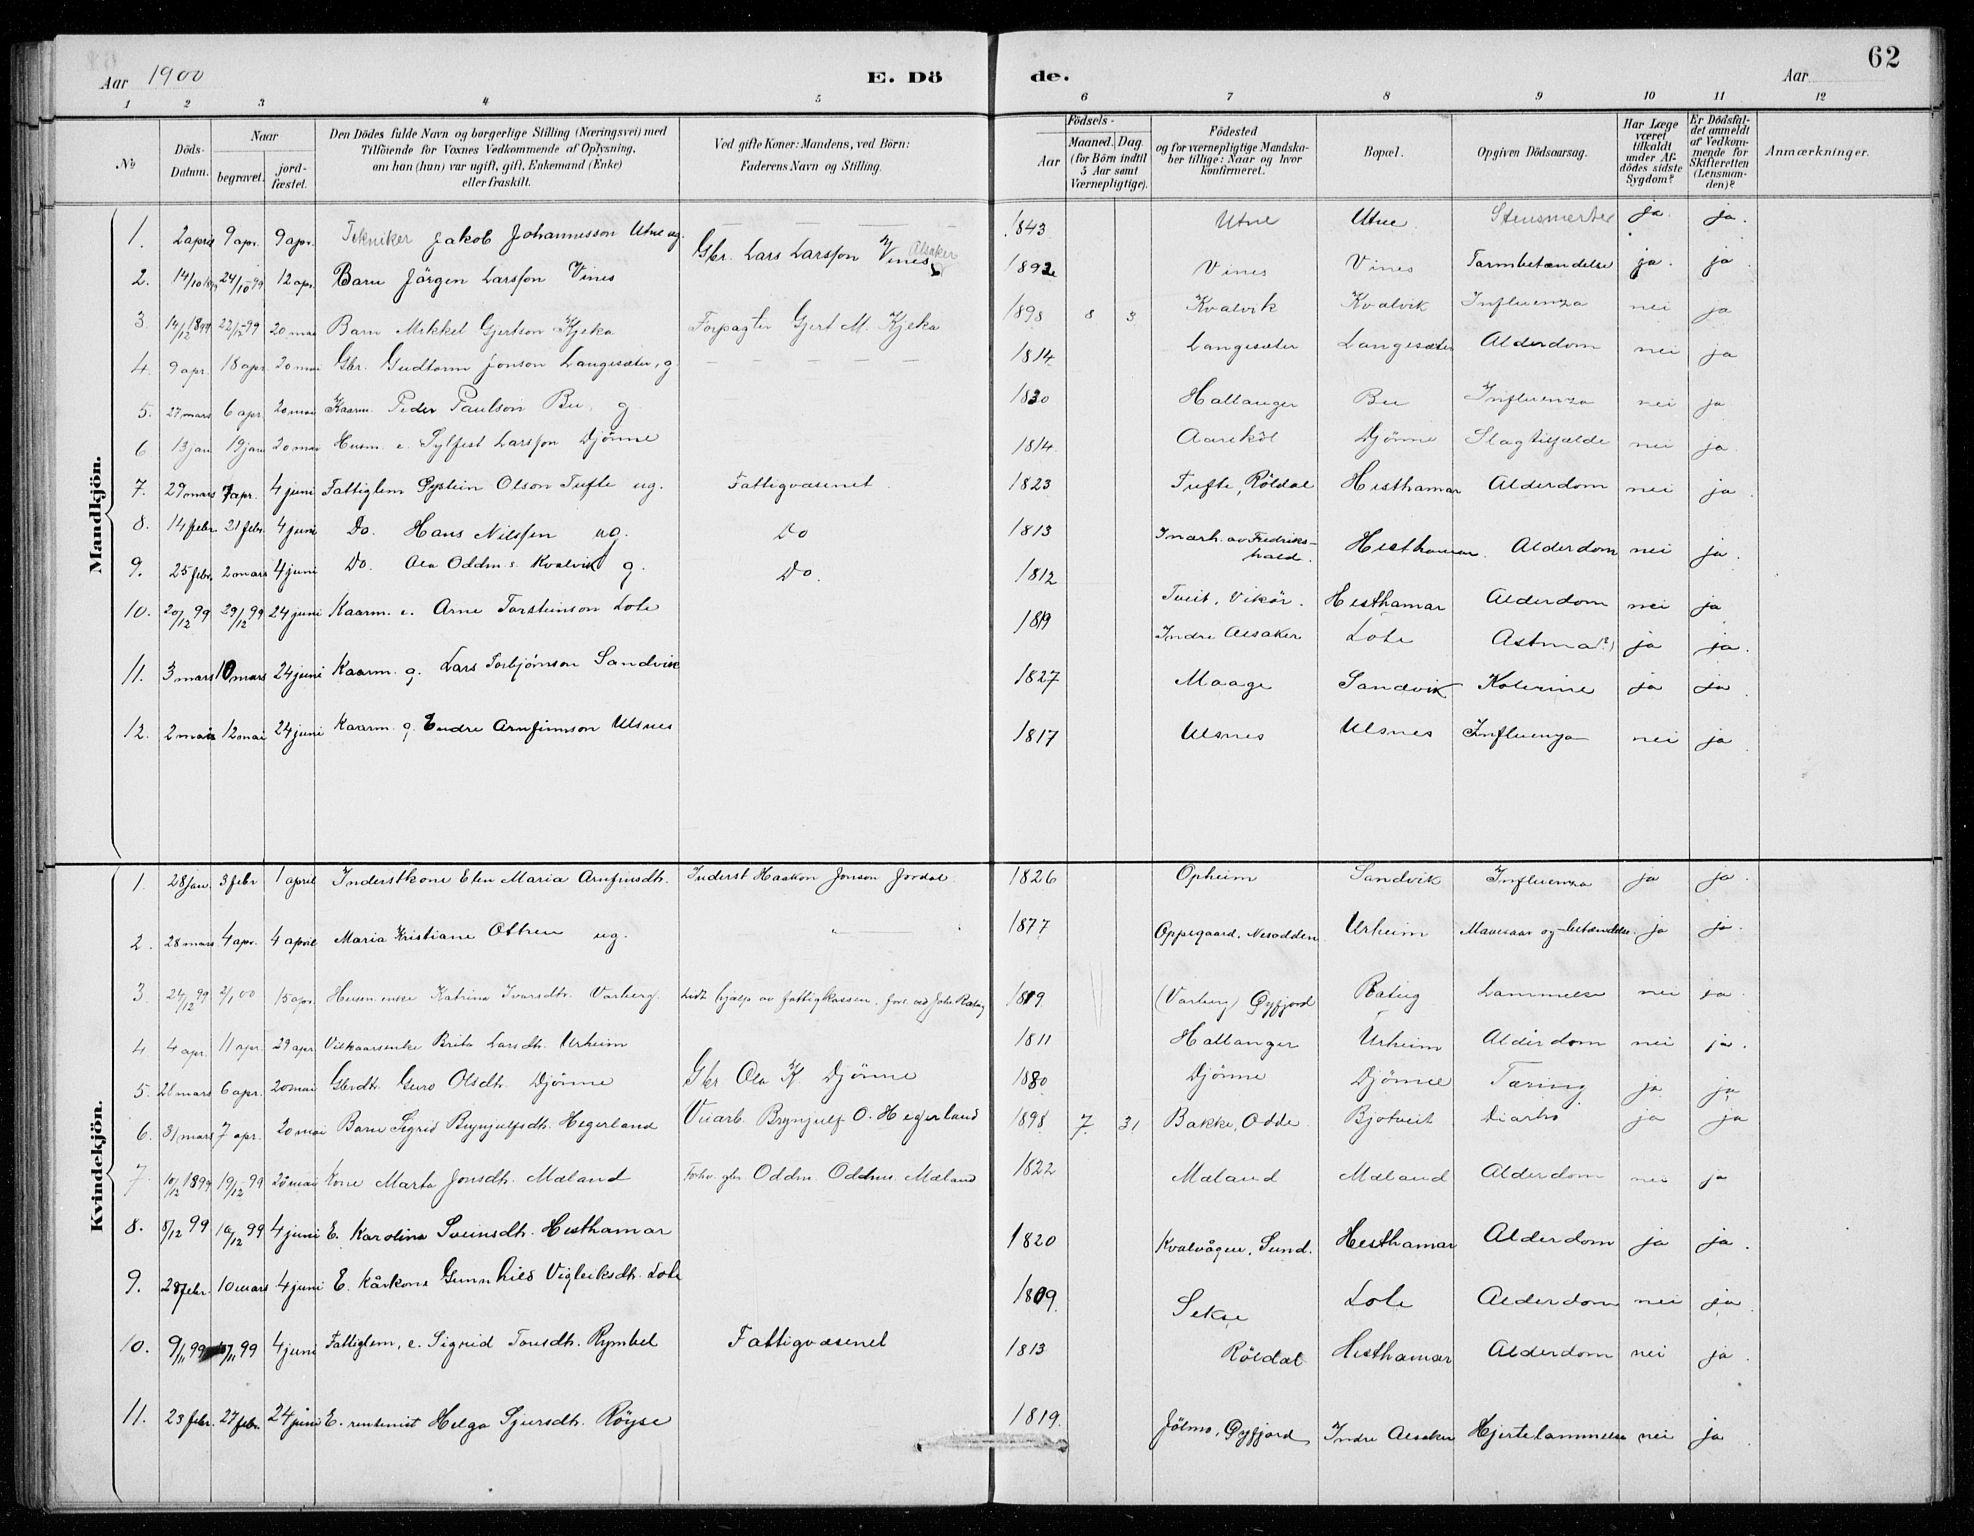 62
Aar 1900 E. Dö de. Aar
1 2 3 4 5 6 7 8 9 10 11 12
No
Döds-Datum.
Naar
begravet.
jord-fæstet.
Den Dödes fulde Navn og borgerlige Stilling (Næringsvei) med
Tilföiende for Voxnes Vedkommende af Oplysning,
om han (hun) var ugift, gift, Enkemand (Enke)
eller fraskilt.
Ved gifte Koner: Mandens, ved Börn:
Faderens Navn og Stilling.
Födsels-
Aar
Maaned. Dag.
(for Börn indtil
5 Aar samt
Værnepligtige).
Födested
og for værnepligtige Mandska-
ber tillige: Naar og hvor
konfirmeret.
Bopæl.
Opgiven Dödsaarsag.
Har Læge
været
tilkaldt
under Af-
dödes sidste
Sygdom?
Er Dödsfal-
det anmeldt
af Vedkom-
mende for
Skifteretten
(Lensman-
den)?
Anmærkninger.
Mandkjön.
1. 2 april 9 apr. 9 apr. Tekniker Jakob Johannesson Utne ug. — — — 1843 Utne Utne Stensmerter ja. ja.
2. 14/10 99 24/10 99 12 apr. Barn Jörgen Larsson Vines Gbr. Lars Larsson Vines Alsaker 1892 Vines Vines Tarmbetændelse ja. ja
3 14/12 1899 22/12 99 20 mai Barn Mikkel Gjertson Kjeka Forpagter Gjert M. Kjeka 1898 8 3 Kvalvik Kvalvik Influenza nei ja
4. 9 apr. 18 apr. 20 mai Gbr. Gudtorm Jonson Langesæter, g. — — — — 1814 Langesæter Langesæter Alderdom nei ja
5. 27 mars 6 apr. 20 mai Kaarm. Peder Paulson Bu, g 1830 Hallanger Bu Influenza nei ja
6 13 jan 19 jan 20 mai Husm. e. Sylfest Larsson Djönne 1814 Djönne Slagtilfælde nei ja.
7. 29 mars 7 apr. 4 juni Fattiglem Öystein Olson Tufte ug. Fattigvæsenet 1823 Tufte, Röldal Hesthamar Alderdom nei ja
8. 14 febr. 21 febr. 4 juni Do. Hans Nilssen ug. Do 1813 Inærh. av Fredriks-
hald. Hesthamar. Alderdom nei ja.
9. 25 febr. 2 mars 4 juni Do. Ola Oddm.s. Kvalvik g. Do. 1812 Tveit, Vikör. Hesthamar Alderdom nei ja
10. 20/12 99 29/12 99 24 juni Kaarm. e. Arne Torsteinson Lote 1819 Indre Alsaker Lote Astma(?) ja ja.
11. 3 mars 10 mars 24 juni Kaarm. g. Lars Torbjörnson Sandvik 1827 Maage Sandvik Kolerine ja ja
12. 2 mai 12 mai 24 juni Kaarm. g. Endre Arnfinnson Ulsnes 1817 Ulsnes Ulsnes Influenza nei ja
Kvindekjön.
1. 28 jan. 3 febr 1 april Inderstkone Elen Maria Arnfinsdh. Inderst Haakon Jonson Jordal. 1826 Opheim Sandvik Influenza ja ja
2. 28 mars 4 apr. 4 april Maria Kristiane Ottsen ug. 1877 Oppegaard, Nesodden Urheim Mavesaar og -betændelse. ja ja.
3. 24/12 99 2/1 00 15 apr. Husm.enke Katrina Ivarsdh. Varberg. Lidt hjælp av fattigkassen. 1819 (Varberg) Öyfjord Lammelse nei ja.
4 4 apr. 11 apr. 29 apr. Vilkaarsenke Brita Larsdh. Urheim 1811 Hallanger Urheim Alderdom nei ja.
5. 26 mars 6 apr. 20 mai Gbrdh. Guro Olsdh. Djönne Gbr Ola K. Djönne 1880 Djönne Djönne Tæring ja ja
6. 31 mars 7 apr. 20 mai Barn Sigrid Brynjulfsdh. Hegerland Veiarb. Brynjulf O. Hegerland 1898 7 31 Bakke, Odde Bjotveit Diarhö ja ja
7 10/12 1899 19/12 99 20 mai Kone Marta Jonsdh. Mæland Forhv. gbr Oddm. Oddms. Mæland 1822 Mæland Mæland Alderdom nei ja
8. 8/12 99 16/12 99 4 juni E. Karolina Sveinsdh. Hesthamar 1820 Kvalvågen, Sund. Hesthamar Alderdom ja ja.
9. 28 febr. 10 mars 4 juni E. Kårkone Gunnhild Vigleiksdh. Lote 1809 Sekse Lote Alderdom nei ja
10. 9/11 99 /11 99 4 juni Fattiglem, e. Sigrid Toresdh. Rymbel Fattigvæsenet 1813 Röldal Hesthamar Alderdom nei ja.
11. 23 febr. 27 febr. 24 juni E. rentenist Helga Sjursdh. Röyse 1819. Jölmo, Öyfjord Indre Alsaker Hjertelammelse nei ja